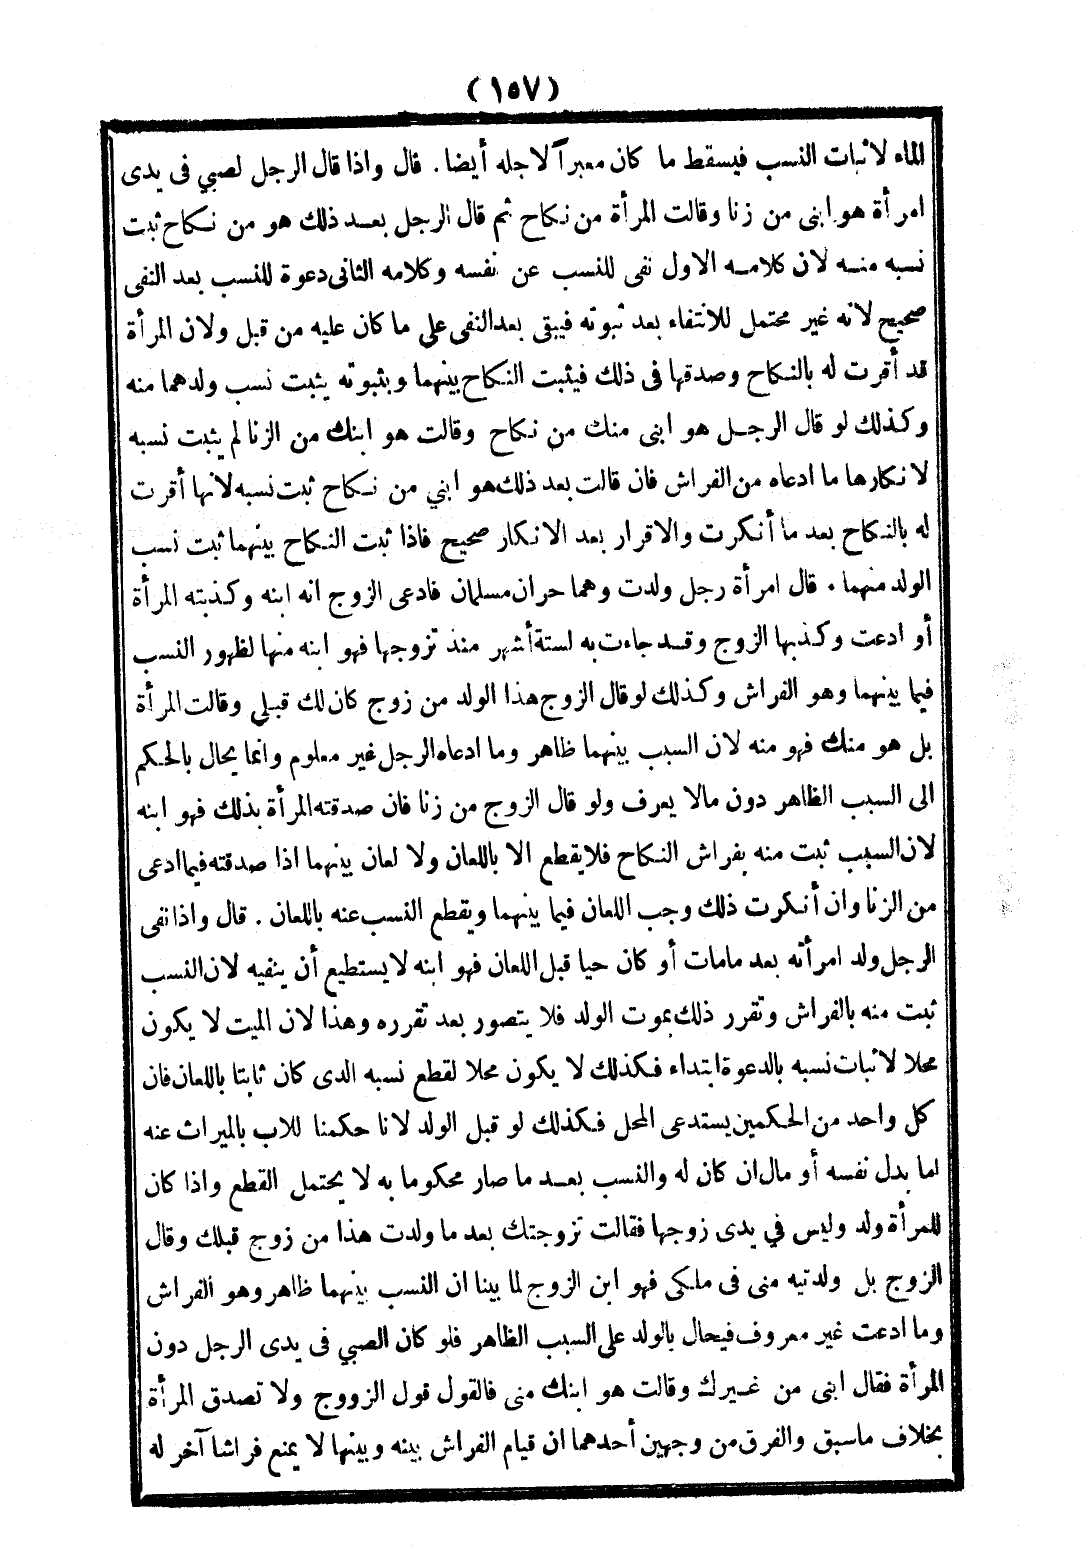 (١٥٧)
الماء لاثبات النسب فيسقط ما كان معبرآ لاجله أيضا . قال واذا قال الرجل لصبي فى يدى
امرأة هو ابنى من زنا وقالت المرأة من نكاح ثم قال الرجل بعد ذلك هو من نكاح ثبت
نسبه منه لان كلامه الاول نفى للنسب عن نفسه وكلامه الثانى دعوة للنسب بعد النفى
صحيح لانه غير محتمل للانتفاء بعد ثبوته فيبقى بعد النفى على ما كان عليه من قبل ولان المرأة
قد أقرت له بالنكاح وصدقها فى ذلك فيثبت النكاح بينهما وبثبوته يثبت نسب ولدهما منه
وكذلك لو قال الرجل هو ابنى منك من نكاح وقالت هو ابنك من الزنا لم يثبت نسبه
لانكارها ما ادعاه من الفراش فان قالت بعد ذلك هو ابني من نكاح ثبت نسبه لانها أقرت
له بالنكاح بعد ما أنكرت والاقرار بعد الانكار صحيح فاذا ثبت النكاح بينهما ثبت نسب
الولد منهما . قال امرأة رجل ولدت وهما حران مسلمان فادعى الزوج انه ابنه وكذبته المرأة
أو ادعت وكذبها الزوج وقد جاءت به لستة أشهر منذ تزوجها فهو ابنه منها لظهور النسب
فيما بينهما وهو الفراش وكذلك لو قال الزوج هذا الولد من زوج كان لك قبلي وقالت المرأة
بل هو منك فهو منه لان السبب بينهما ظاهر وما ادعاه الرجل غير معلوم وانما يحال بالحكم
الى السبب الظاهر دون مالا يعرف ولو قال الزوج من زنا فان صدقته المرأة بذلك فهو ابنه
لان السبب ثبت منه بفراش النكاح فلا يقطع الا باللعان ولا لعان بينهما اذا صدقته فيما ادعى
من الزنا وان أنكرت ذلك وجب اللعان فيما بينهما ويقطع النسب عنه باللعان . قال واذا نفى
الرجل ولد امرأته بعد مامات أو كان حيا قبل اللعان فهو ابنه لا يستطيع أن ينفيه لان النسب
ثبت منه بالفراش وتقرر ذلك بموت الولد فلا يتصور بعد تقرره وهذا لان الميت لا يكون
محلا لاثبات نسبه بالدعوة ابتداء فكذلك لا يكون محلا لقطع نسبه الذى كان ثابتا باللعان فان
كل واحد من الحكمين يستدعى المحل فكذلك لو قبل الولد لانا حكمنا للاب بالميراث عنه
اما بدل نفسه أو مال ان كان له والنسب بعد ما صار محكوما به لا يحتمل القطع واذا كان
للمرأة ولد وليس في يدى زوجها فقالت تزوجتك بعد ما ولدت هذا من زوج قبلك وقال
الزوج بل ولدتيه منى فى ملكى فهو ابن الزوج لما بينا ان النسب بينهما ظاهر وهو الفراش
وما ادعت غير معروف فيحال بالولد على السبب الظاهر فلو كان الصبي فى يدى الرجل دون
المرأة فقال ابنى من غيرك وقالت هو ابنك منى فالقول قول الزووج ولا تصدق المرأة
بخلاف ماسبق والفرق من وجهين أحدهما ان قيام الفراش بينه وبينها لا يمنع فراشا آخر له